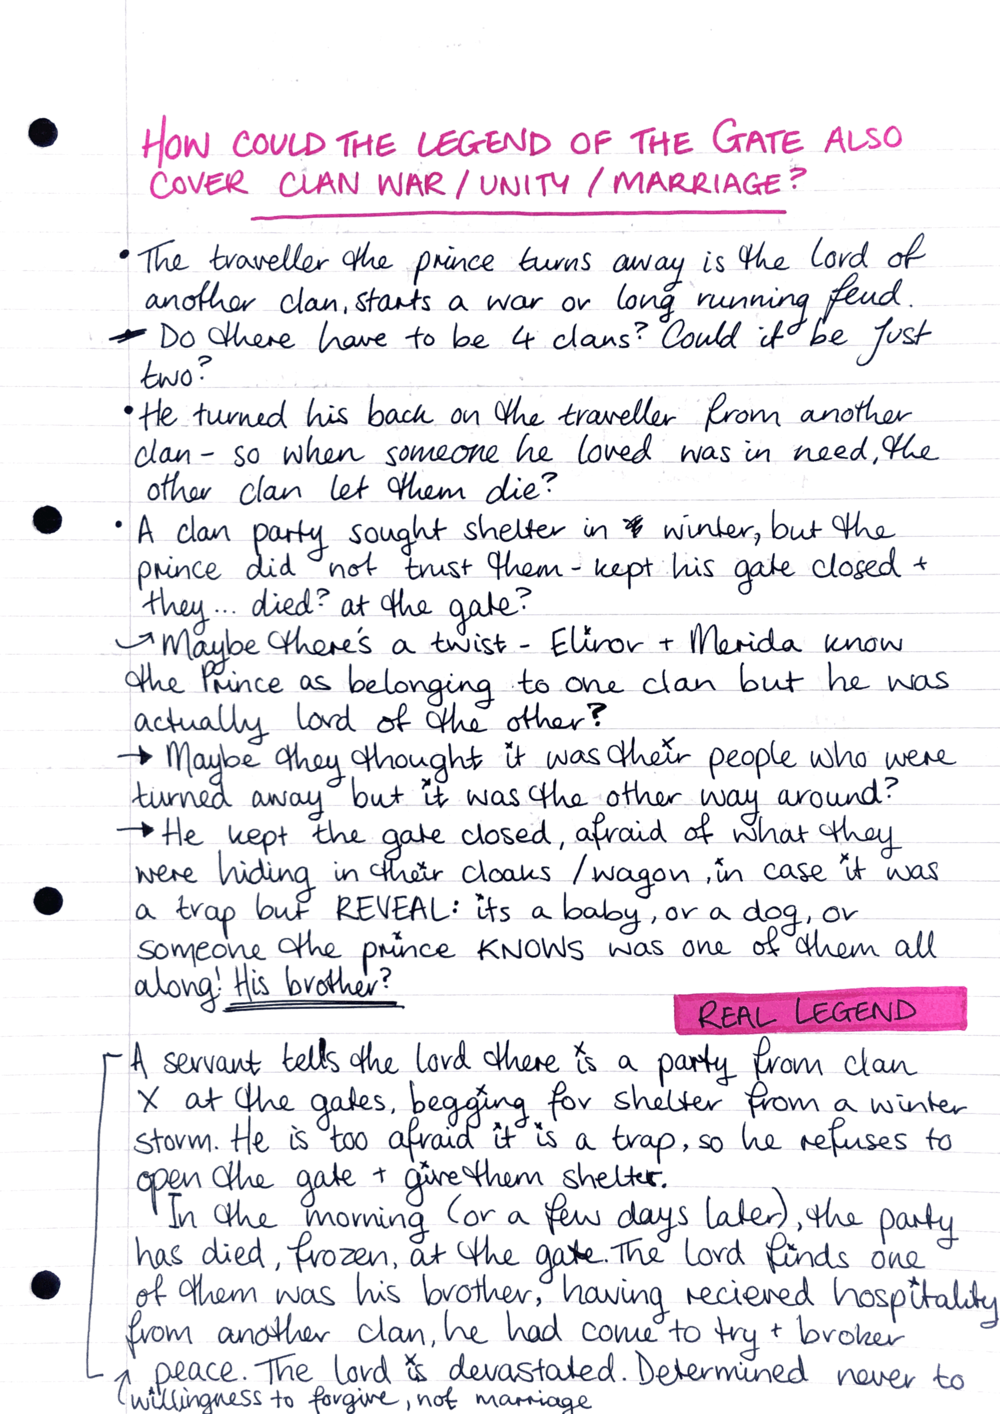 HOW COULD THE LEGEND OF THE GATE ALSO
COVER CLAN WAR / UNITY / MARRIAGE?
• The traveller the prince turns away is the lord of
another clan, starts a war or long running feud.
→ Do there have to be 4 clans? Could it be just
two?
• He turned his back on the traveller from another
clan - so when someone he loved was in need, the
other clan let them die?
• A clan party sought shelter in winter, but the
prince did not trust them - kept his gate closed +
they... died? at the gate?
→ Maybe there's a twist - Elinor + Merida know
the Prince as belonging to one clan but he was
actually lord of the other?
→ Maybe they thought it was their people who were
turned away but it was the other way around?
→ He kept the gate closed, afraid of what they
were hiding in their cloaks / wagon, in case it was
a trap but REVEAL: its a baby, or a dog, or
someone the prince KNOWS was one of them all
along! His brother?
REAL LEGEND
A servant tells the lord there is a party from clan
X at the gates, begging for shelter from a winter
storm. He is too afraid it is a trap, so he refuses to
open the gate + give them shelter.
In the morning (or a few days later), the party
has died, frozen, at the gate. The lord finds one
of them was his brother, having recieved hospitality
from another clan, he had come to try + broker
peace. The lord is devastated. Determined never to
↑ willingness to forgive, not marriage